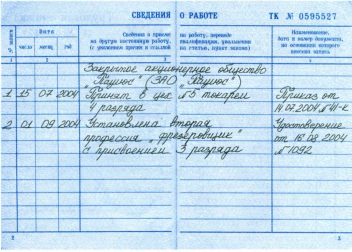 СВЕДЕНИЯ О РАБОТЕ ТК № 0595527
№ записи
Дата
число месяц год
Сведения о приеме на работу, переводе
на другую постоянную работу, квалификации, увольнении
(с указанием причин и ссылкой на статью, пункт закона)
Наименование,
дата и номер документа,
на основании которого
внесена запись
1 2 3 4
Закрытое акционерное общество
(ЗАО
1 15 07 2004 Принят в цех №5 токарем Приказ от
4 разряда 14.07.2004 №41-к
2 01 09 2004 Установлена вторая Удостоверение
профессия „Фрезеровщик" от 16.08.2004
с присвоением 3 разряда №1092
2 3